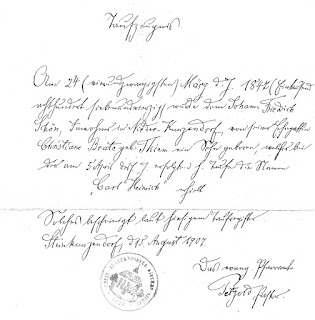 Taufzeugnis.
Am 24 (vierundzwanzigsten) März d. J. 1847 (Eintausend
achthundert siebenundvierzig) wurde dem Johann Friedrich
Schön, Inwohner in Nieder-Kunzendorf, von seiner Ehegattin
Christiane Beate geb. Thiem ein Sohn geboren, welcher bei
der am 5 April desf. J. erfolgten h. Taufe die Namen
"Carl Heinrich" erhielt.
Solches bescheinigt laut hiesigem Taufregister
Steinkunzendorf, d. 15. August 1907.
Das evang. Pfarramt
Petzold Pastor.